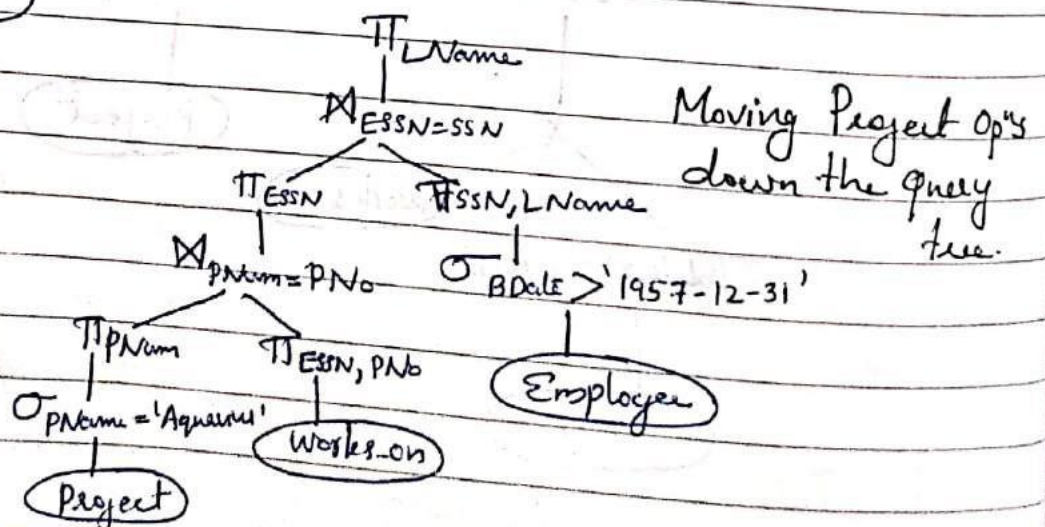 π LName
⋈ ESSN=SSN
Moving Project Opⁿs
down the query
tree.
π ESSN
π SSN, LName
⋈ PNum=PNo
σ BDate > '1957-12-31'
π PNum
π ESSN, PNo
Employee
σ PName = 'Aquarius'
Works_on
Project